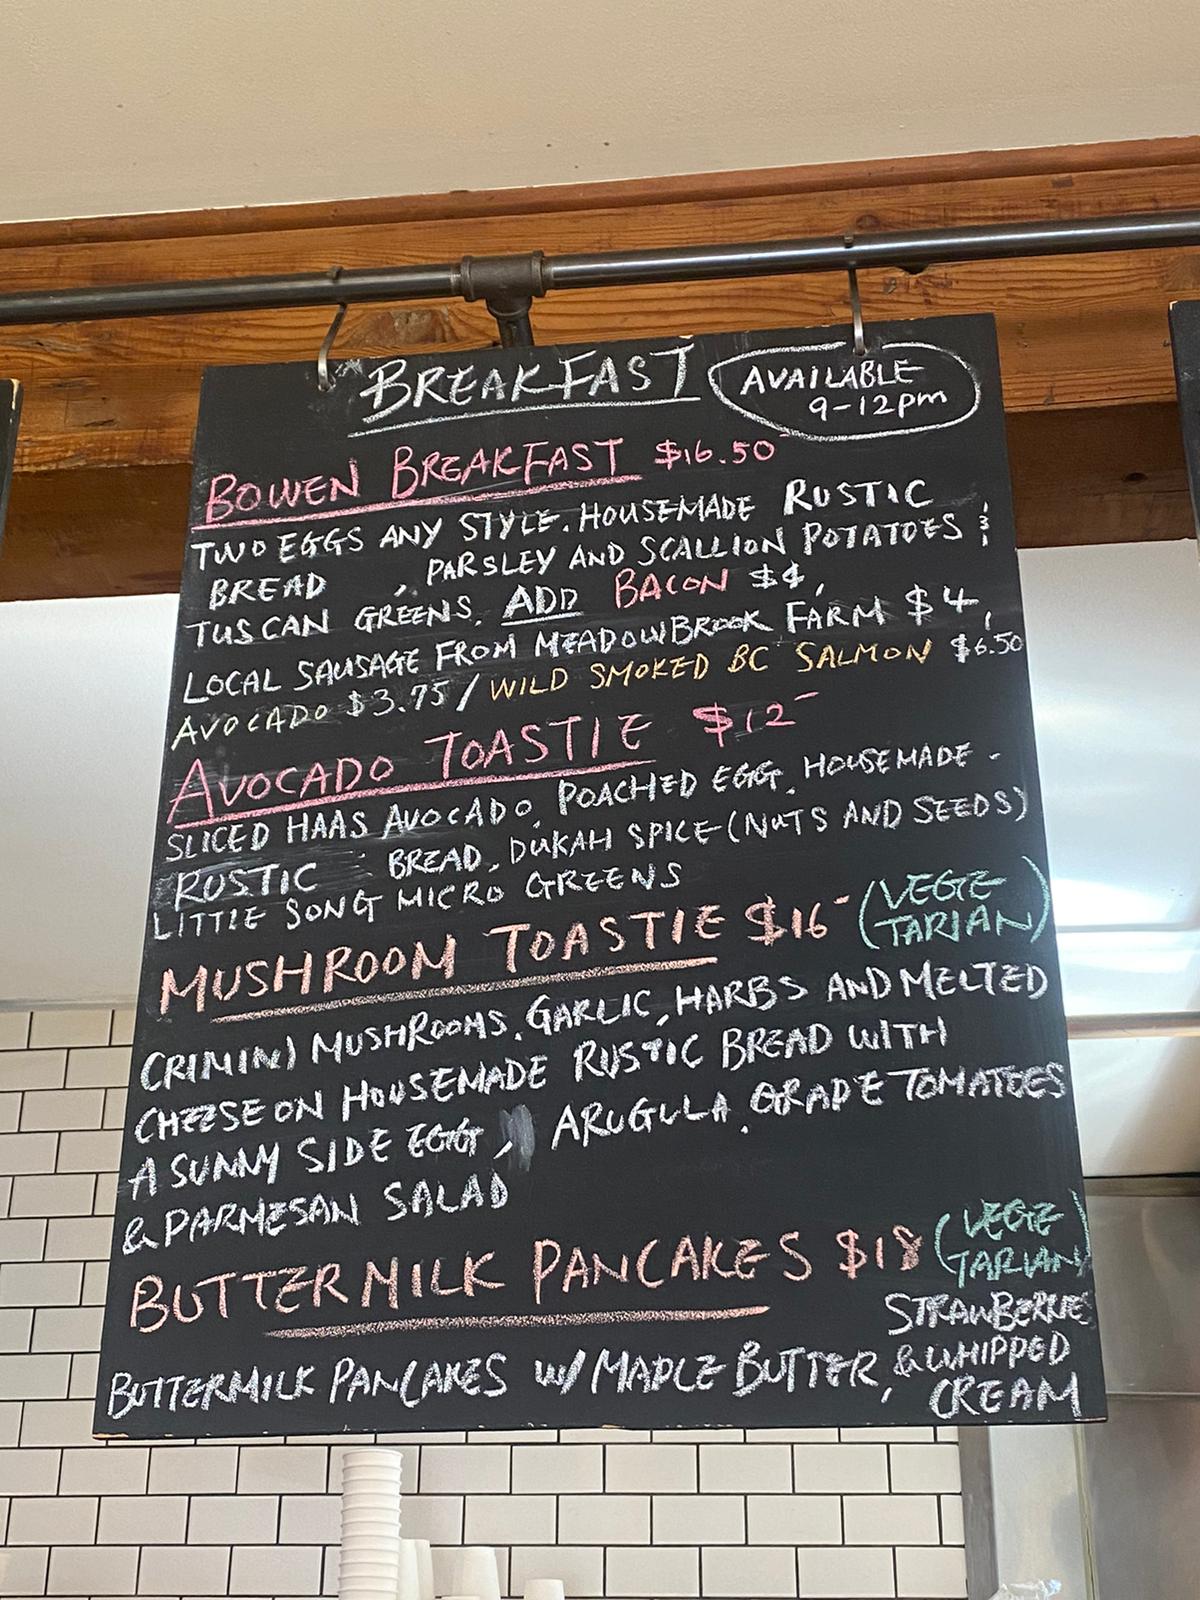 BREAKFAST
AVAILABLE
9-12pm
BOWEN BREAKFAST $16.50
TWO EGGS ANY STYLE. HOUSEMADE RUSTIC
BREAD , PARSLEY AND SCALLION POTATOES &
TUSCAN GREENS. ADD BACON $4,
LOCAL SAUSAGE FROM MEADOWBROOK FARM $4,
AVOCADO $3.75 / WILD SMOKED BC SALMON $6.50
AVOCADO TOASTIE $12-
SLICED HAAS AVOCADO, POACHED EGG, HOUSEMADE -
RUSTIC BREAD, DUKAH SPICE (NUTS AND SEEDS)
LITTLE SONG MICRO GREENS
MUSHROOM TOASTIE $16- (VEGE
TARIAN)
CRIMINI MUSHROOMS, GARLIC, HARBS AND MELTED
CHEESE ON HOUSEMADE RUSTIC BREAD WITH
A SUNNY SIDE EGG, ARUGULA, GRAPE TOMATOES
& PARMESAN SALAD
BUTTERMILK PANCAKES $18 (VEGE
TARIAN)
BUTTERMILK PANCAKES W/ MAPLE BUTTER, STRAWBERRIES
& WHIPPED
CREAM